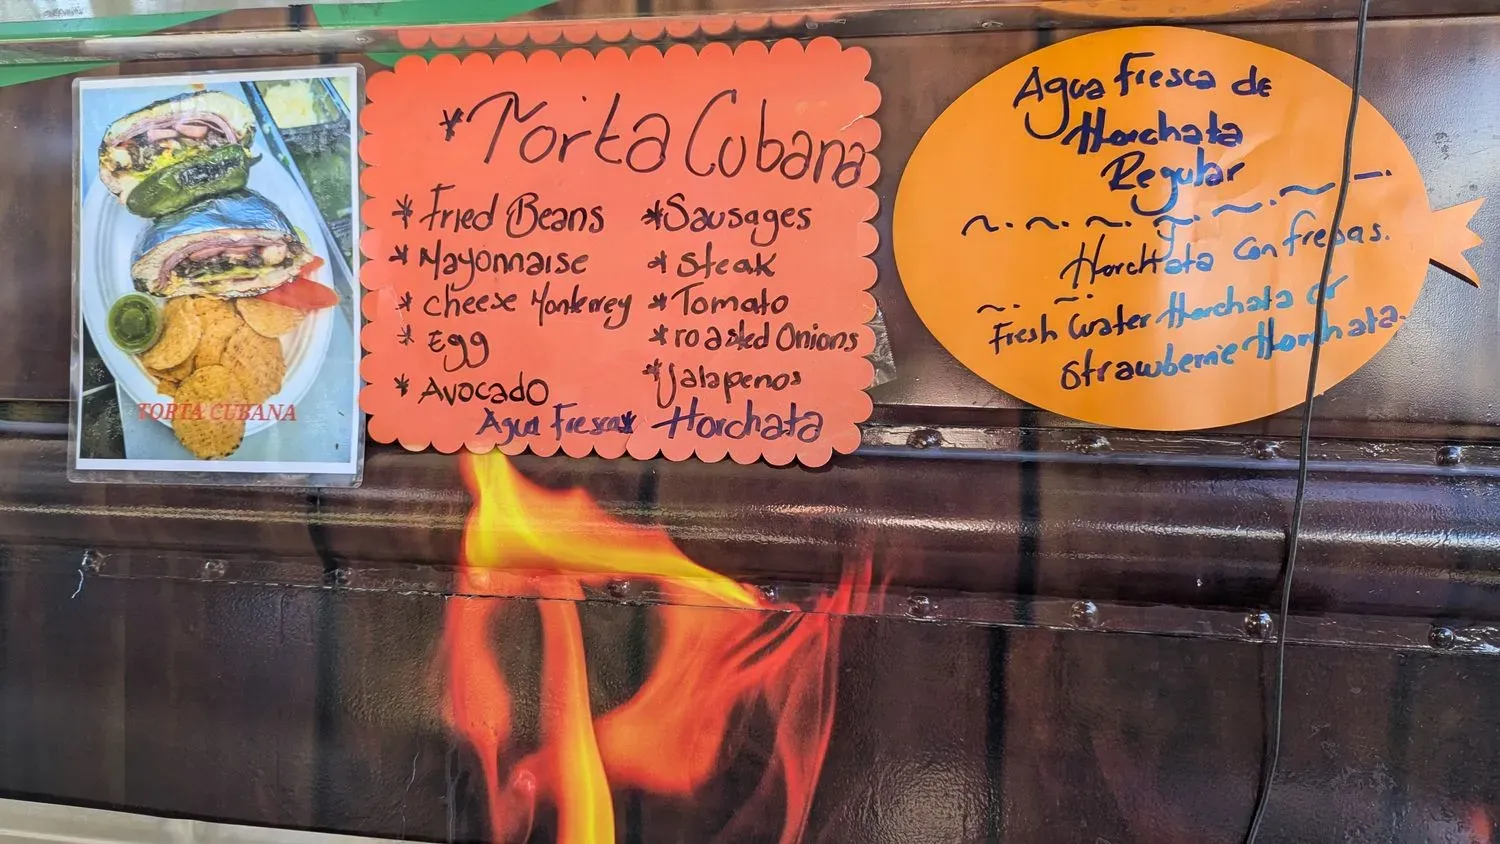 TORTA CUBANA
* Torta Cubana
* Fried Beans
* Mayonnaise
* cheese Monterrey
* Egg
* Avocado
* Sausages
* steak
* Tomato
* roasted Onions
* Jalapenos
Agua Fresca* Horchata
Agua fresca de
Horchata
Regular
~.~.~.~.~.~-.
y
Horchata con fresas.
Fresh Water Horchata or
strawberrie Horchata.